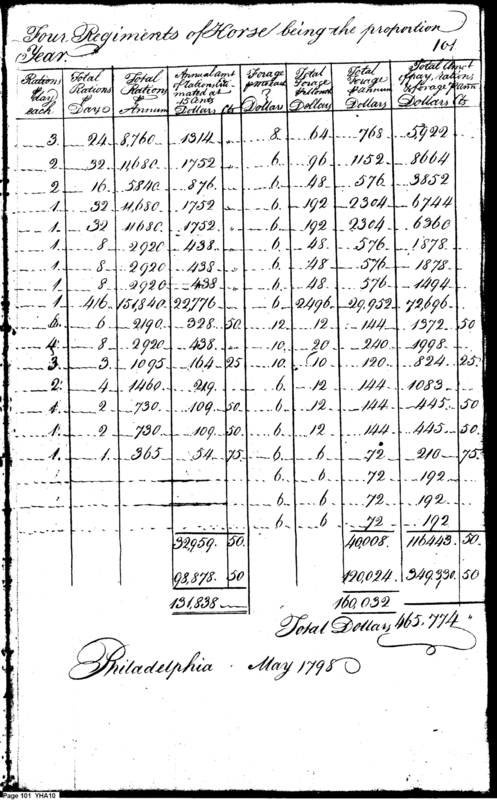 Four Regiments of Horse being the proportion
Year.
101
Rations day each | Total Rations Day | Total Rations Annum | Annual amt of rations estimated at 15 Cents Dollars Cts | Forage Dollars | Total Forage Dollars | Total Forage annum Dollars | Total Amt of pay, rations & forage Dollars Cts
3 24 8,760 1314 " 8 64 768 5922
2 32 11,680 1752 " 6 96 1152 8664
2 16 5840 876 " 6 48 576 3852
1 32 11,680 1752 " 6 192 2304 6744
1 32 11680 1752 " 6 192 2304 6360
1 8 2920 438 " 6 48 576 1878
1 8 2920 438 " 6 48 576 1878
1 8 2920 438 " 6 48 576 1494
1 416 151,840 22,776 6 2496 29,952 72,696
6 6 2190 328 50 12 12 144 1372 50
4 8 2920 438 10 20 240 1998
3 3 1095 164 25 10 10 120 824 25
2 4 1460 219 6 12 144 1083
1 2 730 109 50 6 12 144 445 50
1 2 730 109 50 6 12 144 445 50
1 1 365 54 75 6 6 72 210 75
6 6 72 192
6 6 72 192
6 6 72 192
32959 50 40,008 116443 50
98,878 50 120,024 349,330 50
131,838 160,032
Total Dollars 465,774 "
Philadelphia . May 1798
Page 101 YHA10